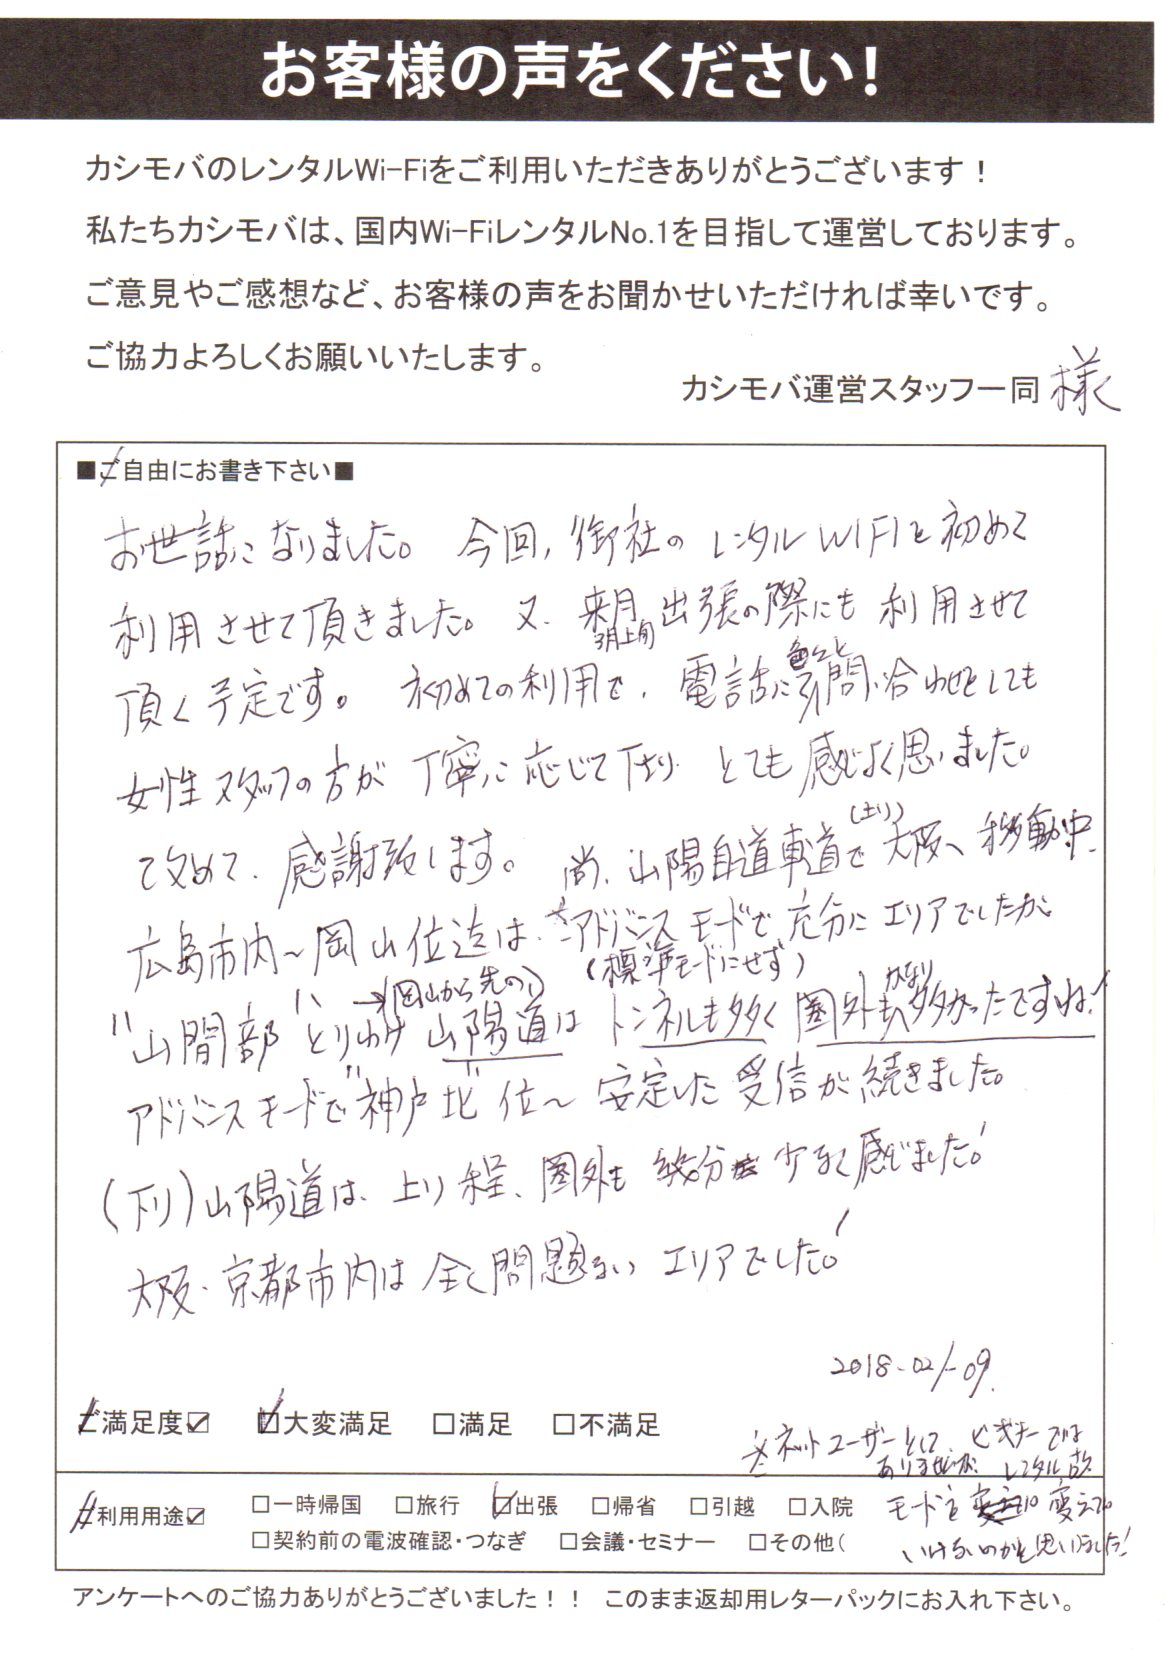 お客様の声をください!
カシモバのレンタルWi-Fiをご利用いただきありがとうございます！
私たちカシモバは、国内Wi-FiレンタルNo.1を目指して運営しております。
ご意見やご感想など、お客様の声をお聞かせいただければ幸いです。
ご協力よろしくお願いいたします。
カシモバ運営スタッフ一同 様
■ご自由にお書き下さい■
お世話になりました。今回、御社の レンタル WIFIを初めて
利用させて頂きました。又、来月 出張の際にも 利用させて
3月上旬
頂く予定です。初めての利用で、電話に 問い合わせをしても
女性スタッフの方が 丁寧に応じて下さり とても感じよく思いました。
て改めて、感謝致します。尚、山陽自道車道で (上り) 大阪へ 移動中、
広島市内〜岡山位迄は、アドバンスモードで充分に エリアでしたが、
(標準モードにせず)
→(岡山から先の)
"山間部" とりわけ 山陽道は トンネルも多く 圏外も かなり 多かったですね!
アドバンスモードで "神戸北" 位〜 安定した 受信が続きました。
(下り) 山陽道は、上り程、圏外も 幾分 少なく感じました!
大阪・京都市内は 全く問題ない エリアでした!
2018-02/-09.
ご満足度☑ ☑大変満足 □満足 □不満足
ネットユーザーとして、ビギナーでは
ありませんが、レンタル故
モードを 変えては
いけないのかと思いました!
ご利用用途☑ □一時帰国 □旅行 ☑出張 □帰省 □引越 □入院
□契約前の電波確認・つなぎ □会議・セミナー □その他(
アンケートへのご協力ありがとうございました！！ このまま返却用レターパックにお入れ下さい。